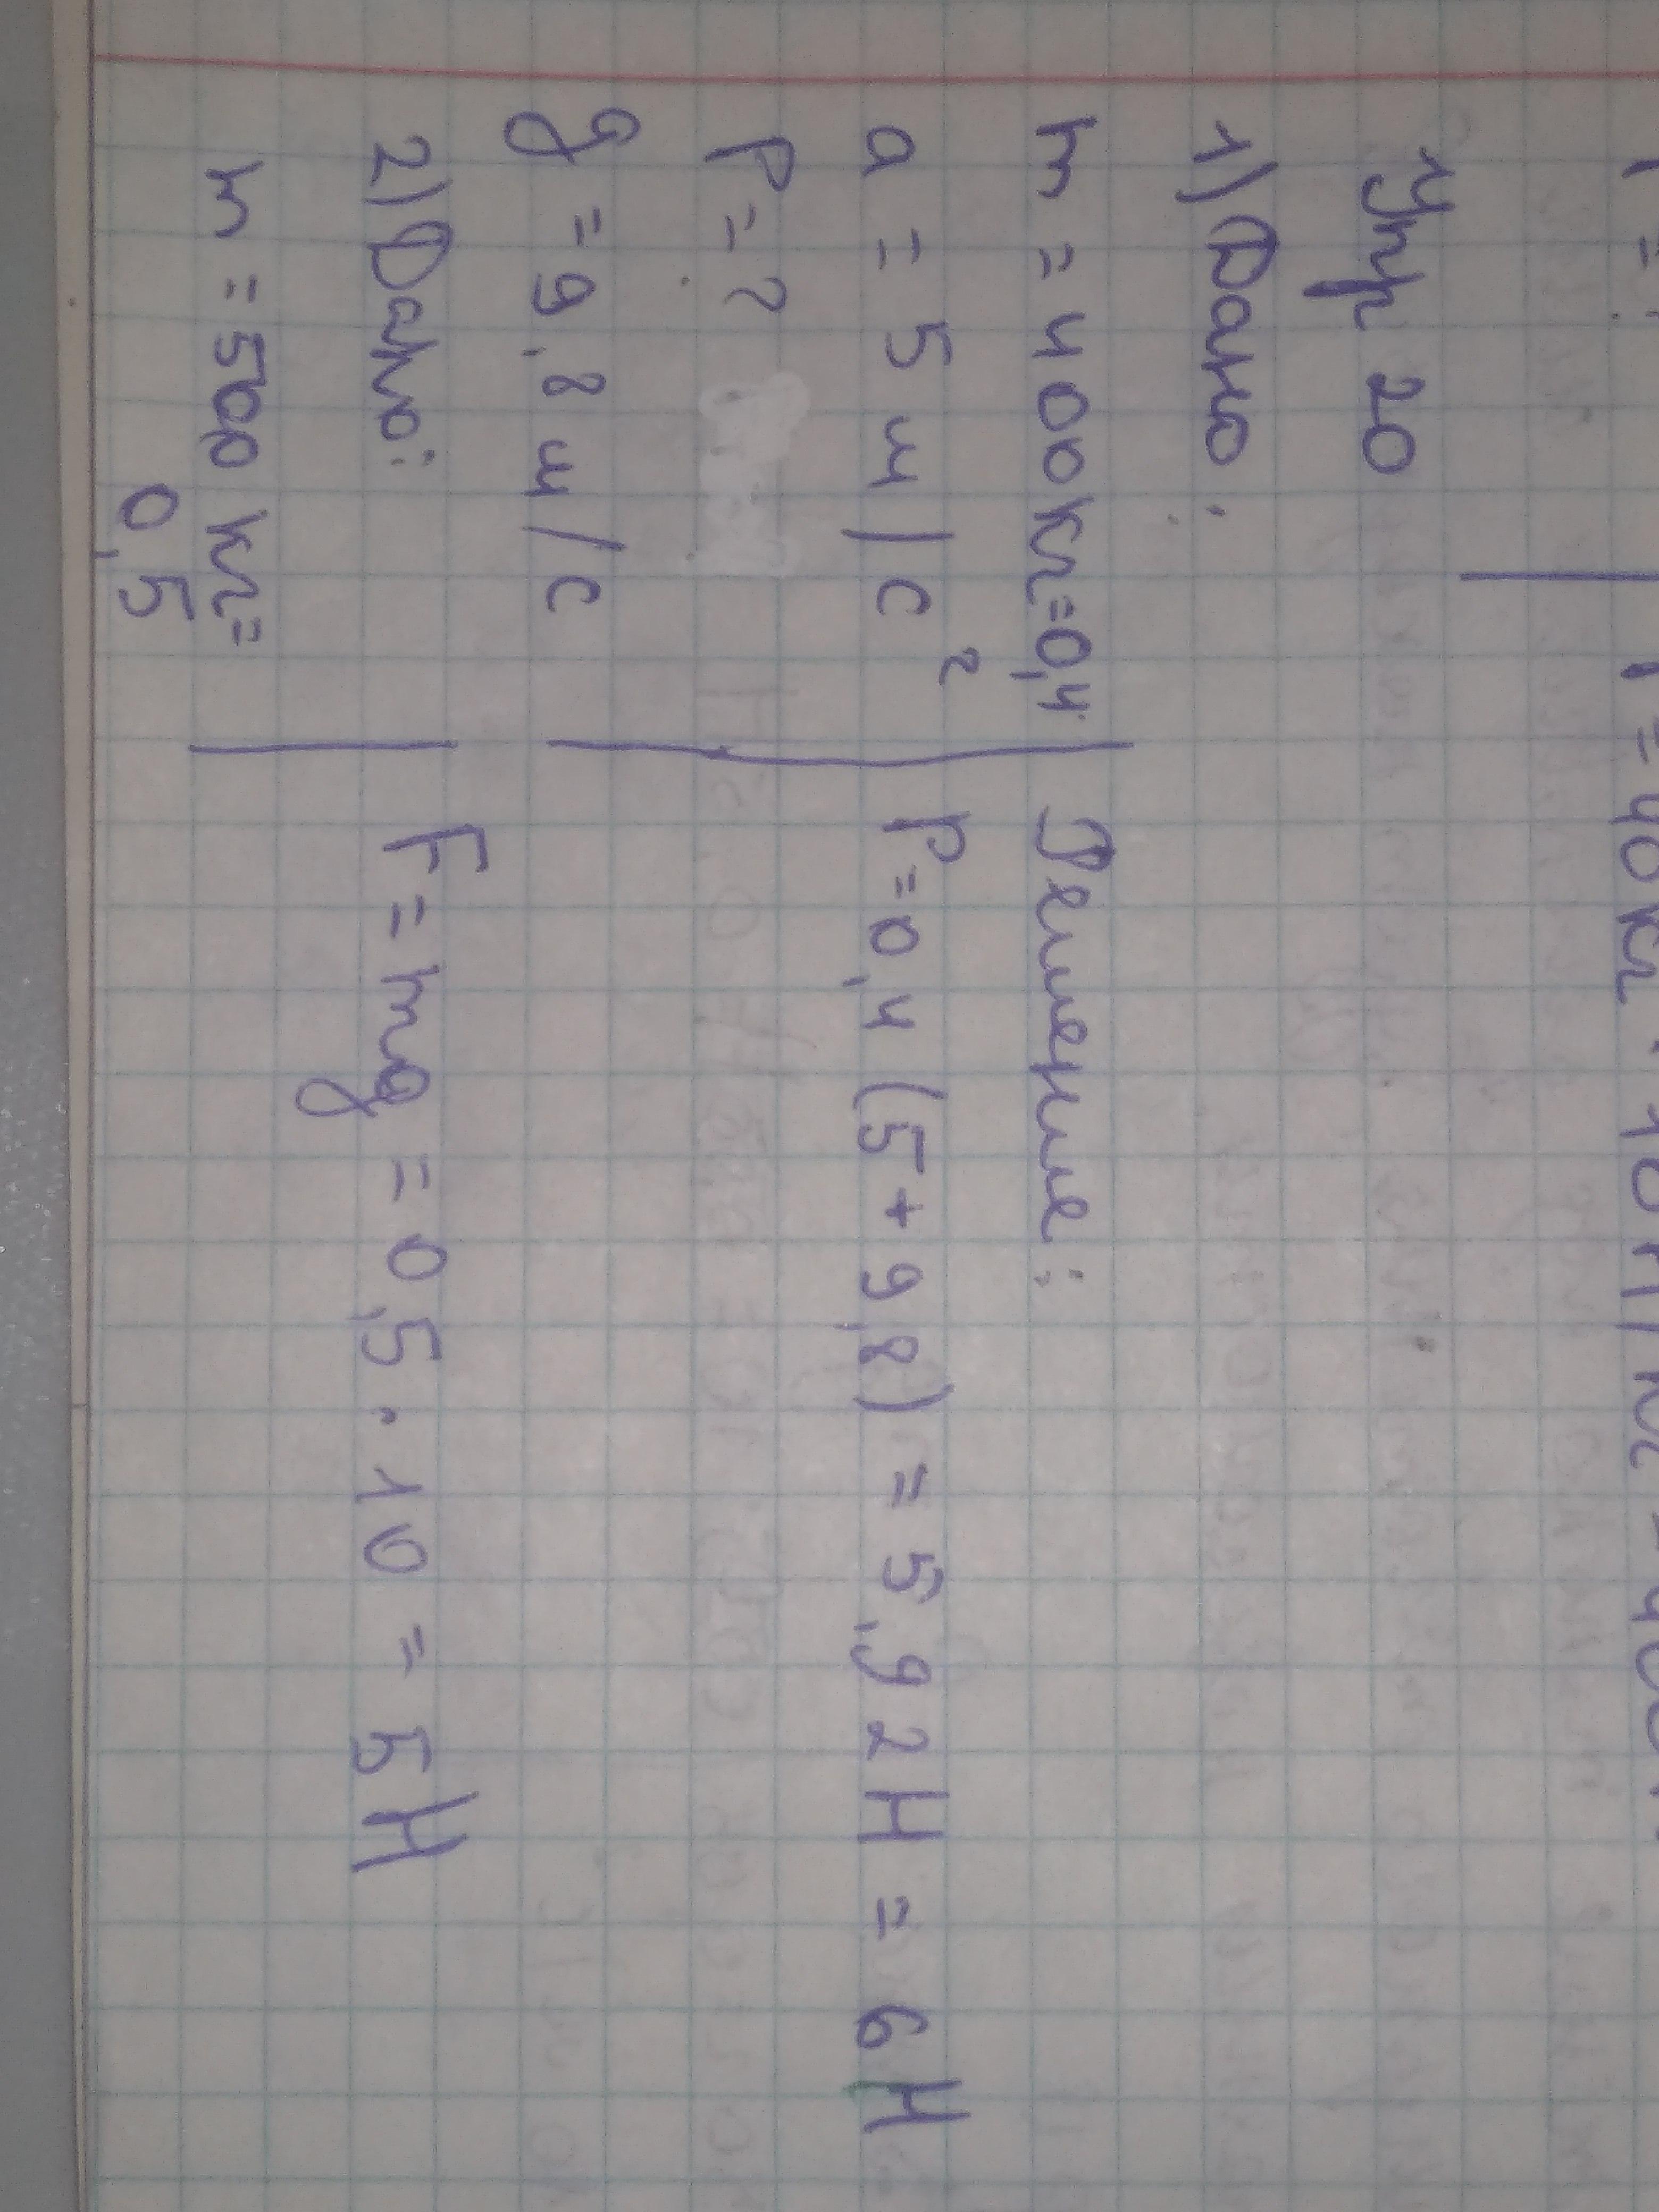 Упр 20
1) Дано:
m = 400кг=0,4
a = 5 м/с²
P = ?
g = 9,8 м/с
Решение:
P=0,4 (5+9,8) = 5,92Н = 6Н
2) Дано:
m = 500 кг=
0,5
F = mg = 0,5 · 10 = 5Н